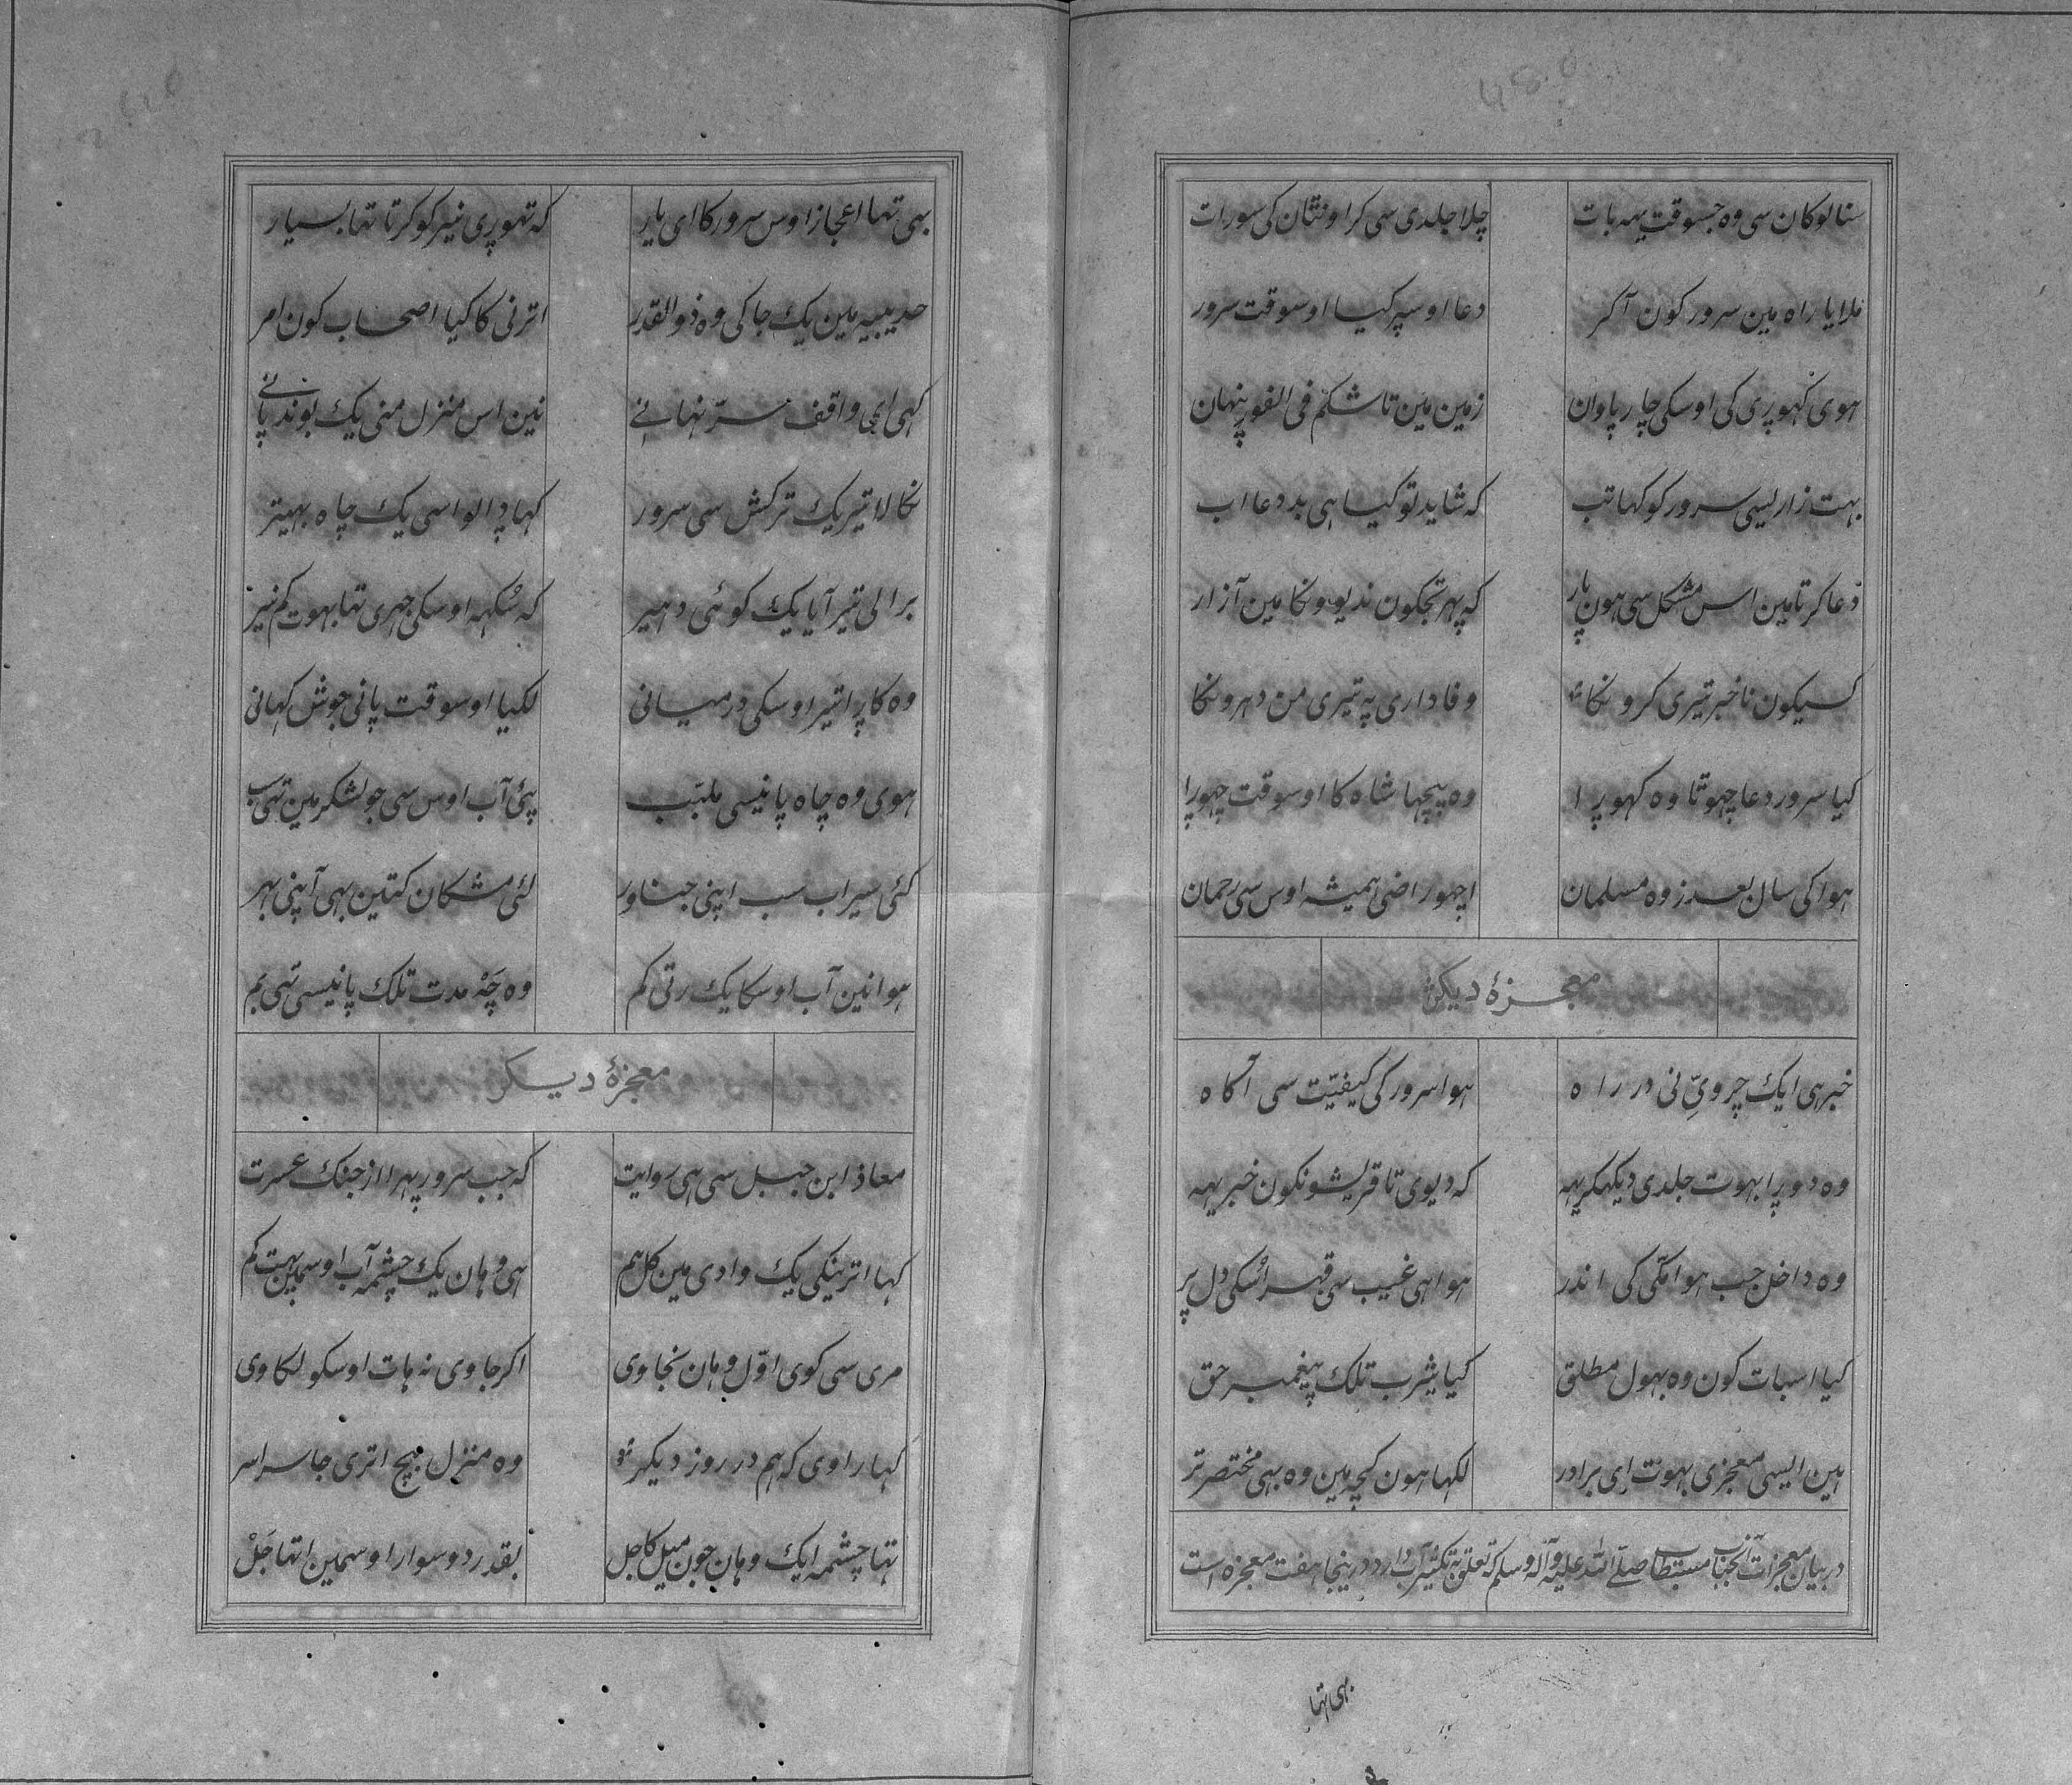 سنا لوکان سی وہ جسوقت یہہ بات چلا جلدی سی کر اونٹان کی سورات
ملایا راہ مین سرور کون آکر دعا اوسپر کیا اوسوقت سرور
ہوی کہوری کی اوسکی چار پاوان زمین مین تا شکم فی الفور پنہان
بہت زاریسی سرور کو کہا تب کہ شاید تو کیا ہی بد دعا اب
دعا کر تا مین اس مشکل سی ہون پار کہ پہر تجکون ندیوونکا مین آزار
کسیکون نا خبر تیری کرونکا وفاداری پہ تیری من دہرونکا
کیا سرور دعا چہوتا وہ کہورا وہ پیچہا شاہ کا اوسوقت چہورا
ہوا کی سال بعد زوہ مسلمان اچہو راضی ہمیشہ اوس سی رحمان
معجزۂ دیکر
خبر ہی ایک چرویّی نی در راہ ہوا سرور کی کیفیّت سی آکاہ
وہ دورا بہوت جلدی دیکہکر یہہ کہ دیوی تا قریشونکون خبر یہہ
وہ داخل جب ہوا مکّی کی اندر ہوا ہی غیب سی قہر اسکی دل پر
کیا اسبات کون وہ بہول مطلق کیا یثرب تلک پیغمبر حق
ہین ایسی معجزی بہوت ای برادر لکہا ہون کچہ مین وہ بہی مختصر تر
در بیان معجزات آنجناب مستطاب صلّے اللہ علیہ وآلہ وسلم کہ تعلق بہ تکثیر آب دارد درینجا ہفت معجزہ است
بہی تہا
بہی تہا اعجاز اوس سرور کا ای یار کہ تہوری نیر کو کرتا تہا بسیار
حدیبیہ مین یک جا کی وہ ذوالقدر اترنی کا کیا اصحاب کون امر
کہی ای واقف سرّ نہانے نین اس منزل منی یک بوند پانے
نکالا تیر یک ترکش سی سرور کہا دالو اسی یک چاہ بہیتر
برا لی تیر آیا یک کوئی دہیر کہ سکہہ اوسکی جہری تہا بہوت کم نیر
وہ کارا تیر اوسکی درمیانی لکیا اوسوقت پانی جوش کہانی
ہوی وہ چاہ پانیسی ملبّب پئی آب اوس سی جو لشکر مین تہی سب
کئی سیراب سب اپنی جناور لئی مشکان کتین بہی آپنی بہر
ہوا نین آب اوسکا یک رتی کم وہ چہ مدت تلک پانیسی تہی بم
معجزۂ دیکر
معاذ ابن جبل سی ہی روایت کہ جب سرور پہرا از جنک عسرت
کہا اترینکی یک وادی مین کل ہم ہی وہان یک چشمہ آب اوسمین بہت کم
مری سی کوی اوّل وہان نجاوی اکر جاوی نہ ہات اوسکو لکاوی
کہا راوی کہ ہم در روز دیکر وہ منزل بیچ اتری جا سراسر
تہا چشمہ ایک وہان جون میل کاجل بقدر دو سوار اوسمین اتہا جل